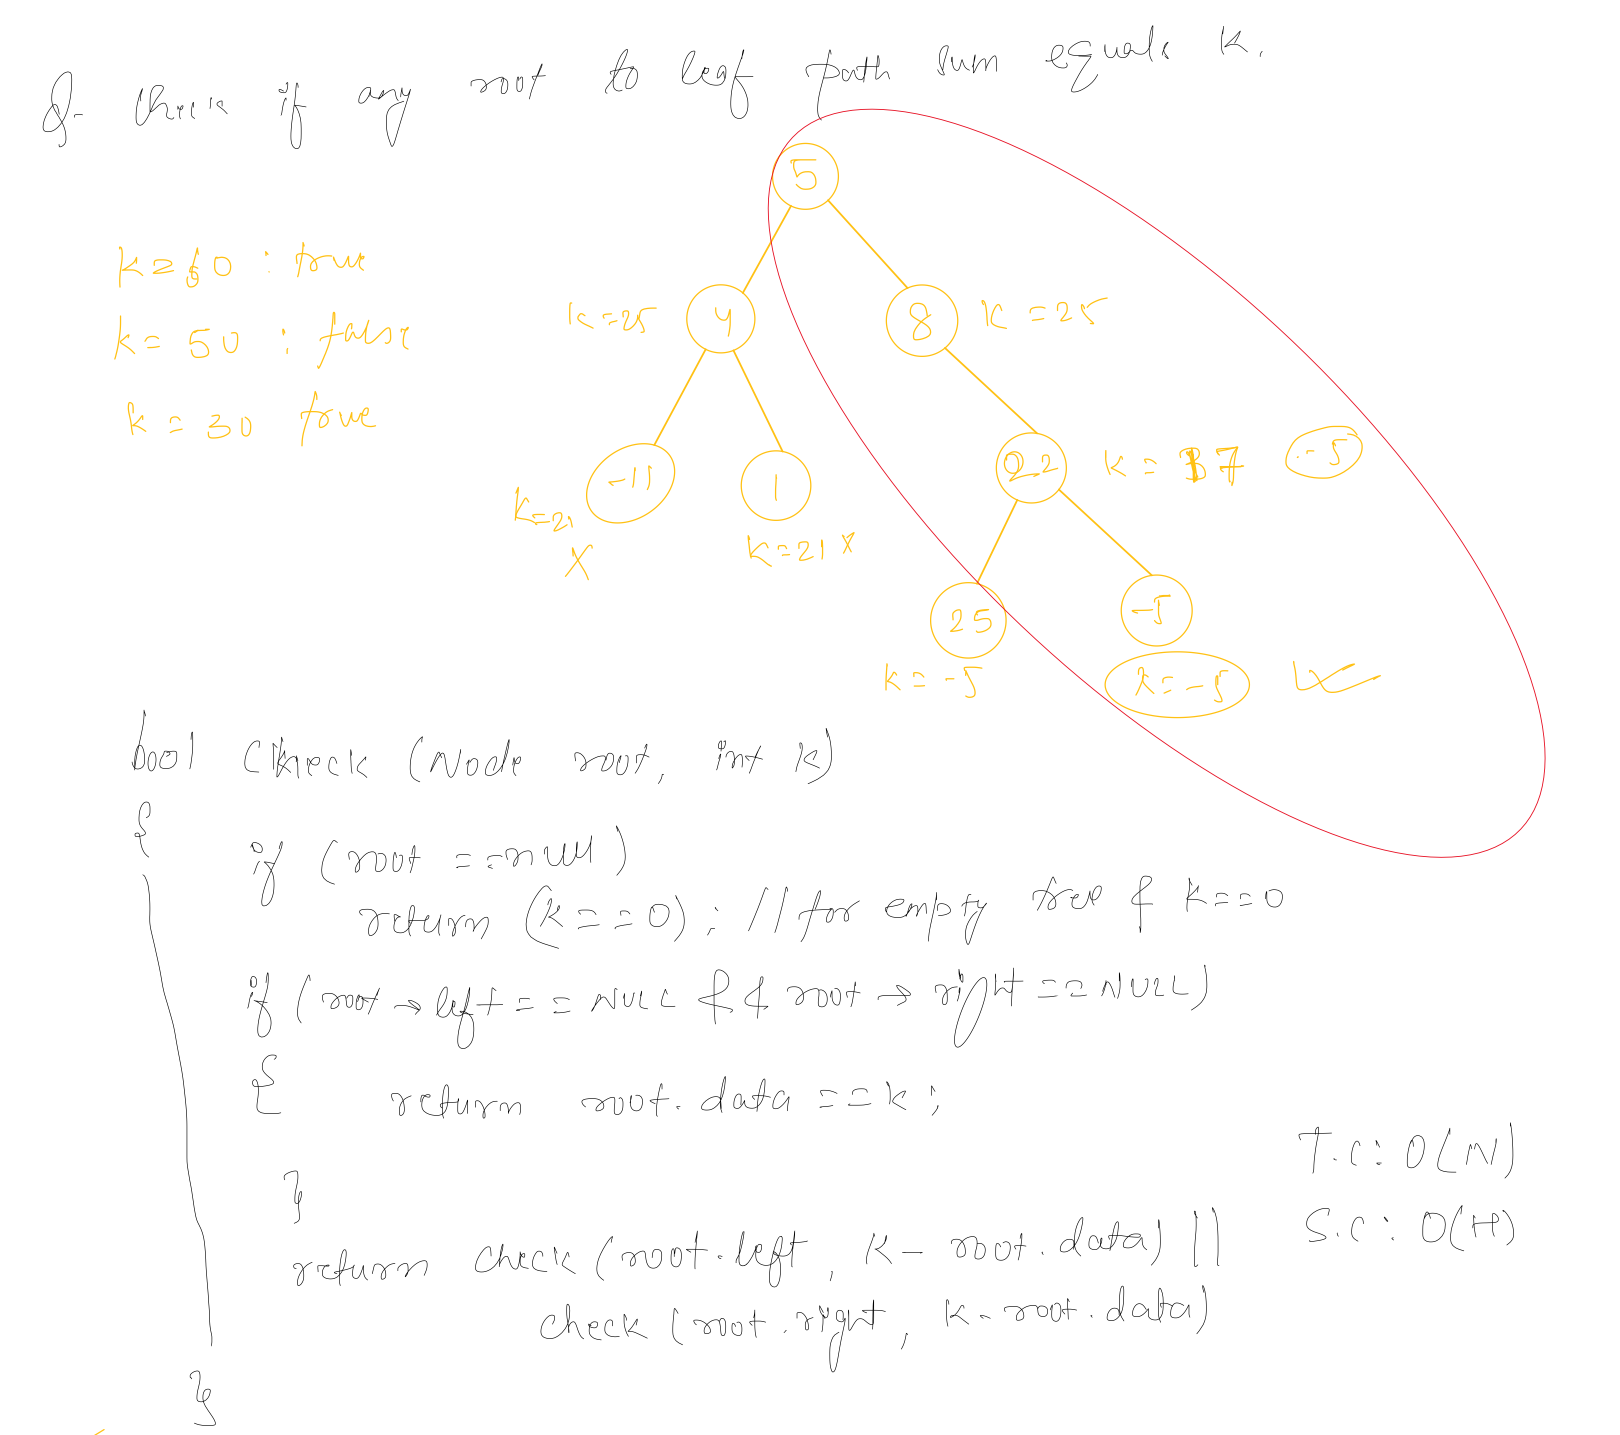 Q- Check if any root to leaf path sum equals K.
5
k=60 : true
k=25
4
8
K=25
k= 50 : false
k = 30 true
-11
1
22
k = 17
-5
K=21
X
K=21 X
25
-5
k = -5
k=-5
bool Check (Node root, int k)
{
if (root ==null)
return (k==0); // for empty tree & k==0
if (root → left == NULL && root → right == NULL)
{ return root.data ==k;
T.C: O(N)
}
S.C: O(H)
return check (root.left, K- root.data) ||
check (root.right, k-root.data)
}